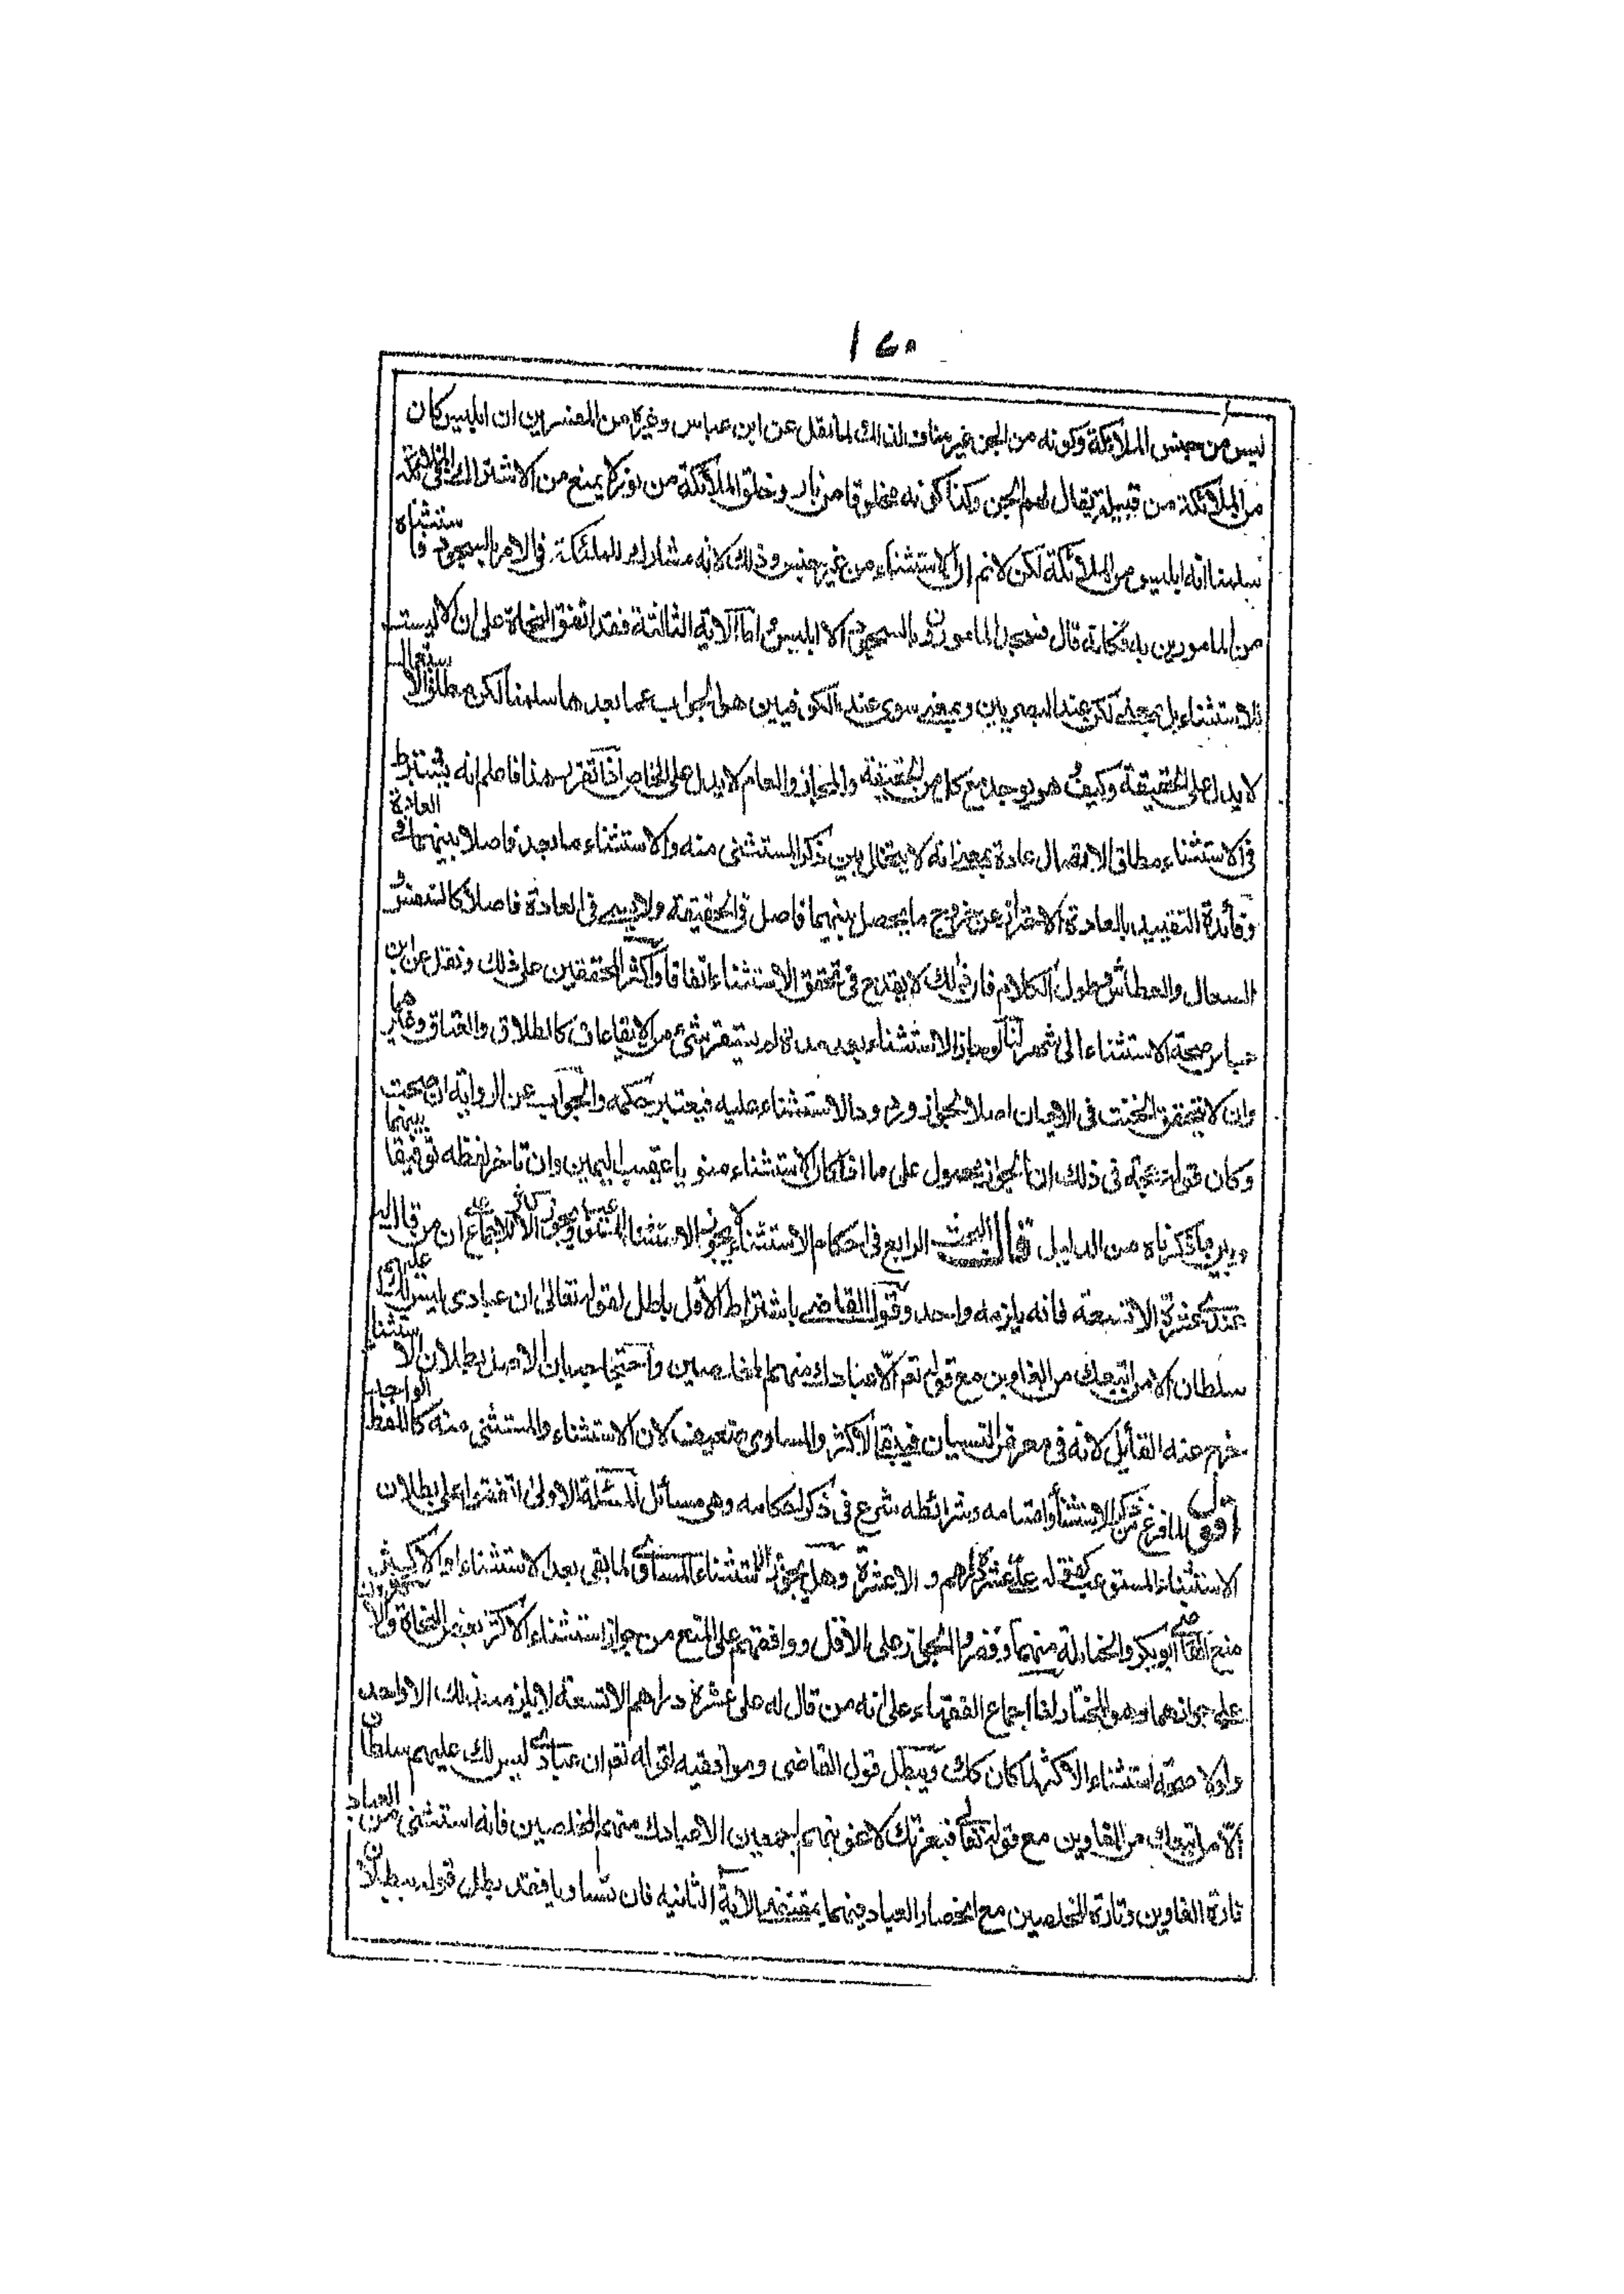 ١٤٥
ليس من جنس الملائكة وكونه من الجن غير مناف لذلك لما نقل عن ابن عباس وغيره من المفسرين ان ابليس كان
من الملائكة من قبيلة يقال لهم الجن وكذا كونه مخلوقا من نار وخلق الملائكة من نور لا يمنع من الاشتراك في الملائكة
سلمنا انه ابليس من الملائكة لكن لا نم ان الاستثناء من غير جنس وذلك لانه مشارك للملئكة في الامر بالسجود فاستثناه
من المامورين به فكانه قال فسجد المامورون بالسجود الا ابليس واما الآية الثالثة فقد اتفق النحاة على ان الا ليست
للاستثناء بل بمعنى لكن عند البصريين وبمعنى سوى عند الكوفيين هو الجواب عما بعدها سلمنا لكن مطلق الاستعمال
لا يدل على الحقيقة وكيف هو يوجد مع كل من الحقيقة والمجاز والعام لا يدل على الخاص اذا تقرر هذا فاعلم انه يشترط
في الاستثناء مطلق الاتصال عادة بمعنى انه لا يتخلل بين ذكر المستثنى منه والاستثناء ما يعد فاصلا بينهما في العادة
وفائدة التقييد بالعادة الاحتراز عن خروج ما يحصل بينهما فاصل في الحقيقة ولا يسمى في العادة فاصلا كالتنفس و
السعال والعطاس وطول الكلام فان ذلك لا يقدح في تحقق الاستثناء اتفاقا واكثر المحققين على ذلك ونقل عن ابن
عباس صحة الاستثناء الى شهر لنا لو جاز الاستثناء بعد مدة لم يستقر شيء من الايقاعات كالطلاق والعتاق وغيرهما
وان لا يتحقق الحنث في الايمان اصلا لجواز ورود الاستثناء عليه فيعتبر حكمه والجواب عن الرواية ان صحت
وكان قوله حجة في ذلك ان الجواز محمول على ما اذا كان الاستثناء منويا عقيب اليمين وان تاخر لفظه توفيقا بينهما
وبين ما ذكرناه من الدليل قال البحث الرابع في احكام الاستثناء لا يجوز الاستثناء المستغرق ويجوز الاكثر للاجماع على ان من قال له
عندي عشرة الا تسعة فانه يلزمه واحد وقول القاضي باشتراط الأقل باطل لقوله تعالى ان عبادي ليس لك عليهم
سلطان الا من اتبعك من الغاوين مع قوله تع الا عبادك منهم المخلصين واحتجاجه بان الاصل بطلان الاستثناء
خرج عنه القليل لانه في معرض النسيان فيبقى الاكثر والمساوي ضعيف لان الاستثناء والمستثنى منه كاللفظ الواحد
اقول لما فرغ من ذكر الاستثناء واقسامه وشرائطه شرع في ذكر احكامه وهي مسائل المسئلة الاولى اتفقوا على بطلان
الاستثناء المستوعب كقوله له علي عشرة دراهم الا عشرة وهل يجوز استثناء المساوي لما بقي بعد الاستثناء او الاكثر
منع القاضي ابو بكر والحنابلة منهما وقصروا الجواز على الاقل ووافقهم على المنع من جواز استثناء الاكثر بعض النحاة والاكثرون
على جوازهما وهو المختار لنا اجماع الفقهاء على انه من قال له على عشرة دراهم الا تسعة لا يلزمه بذلك الا واحد
ولولا صحة استثناء الاكثر لما كان كذلك ويبطل قول القاضي وموافقيه لقوله تع ان عبادي ليس لك عليهم سلطان
الا من اتبعك من الغاوين مع قوله تعالى فبعزتك لاغوينهم اجمعين الا عبادك منهم المخلصين فانه استثنى من العباد
تارة الغاوين وتارة المخلصين مع انحصار العباد فيهما بمقتضى الآية الثانية فان تساويا فقد بطل قوله ببطلان